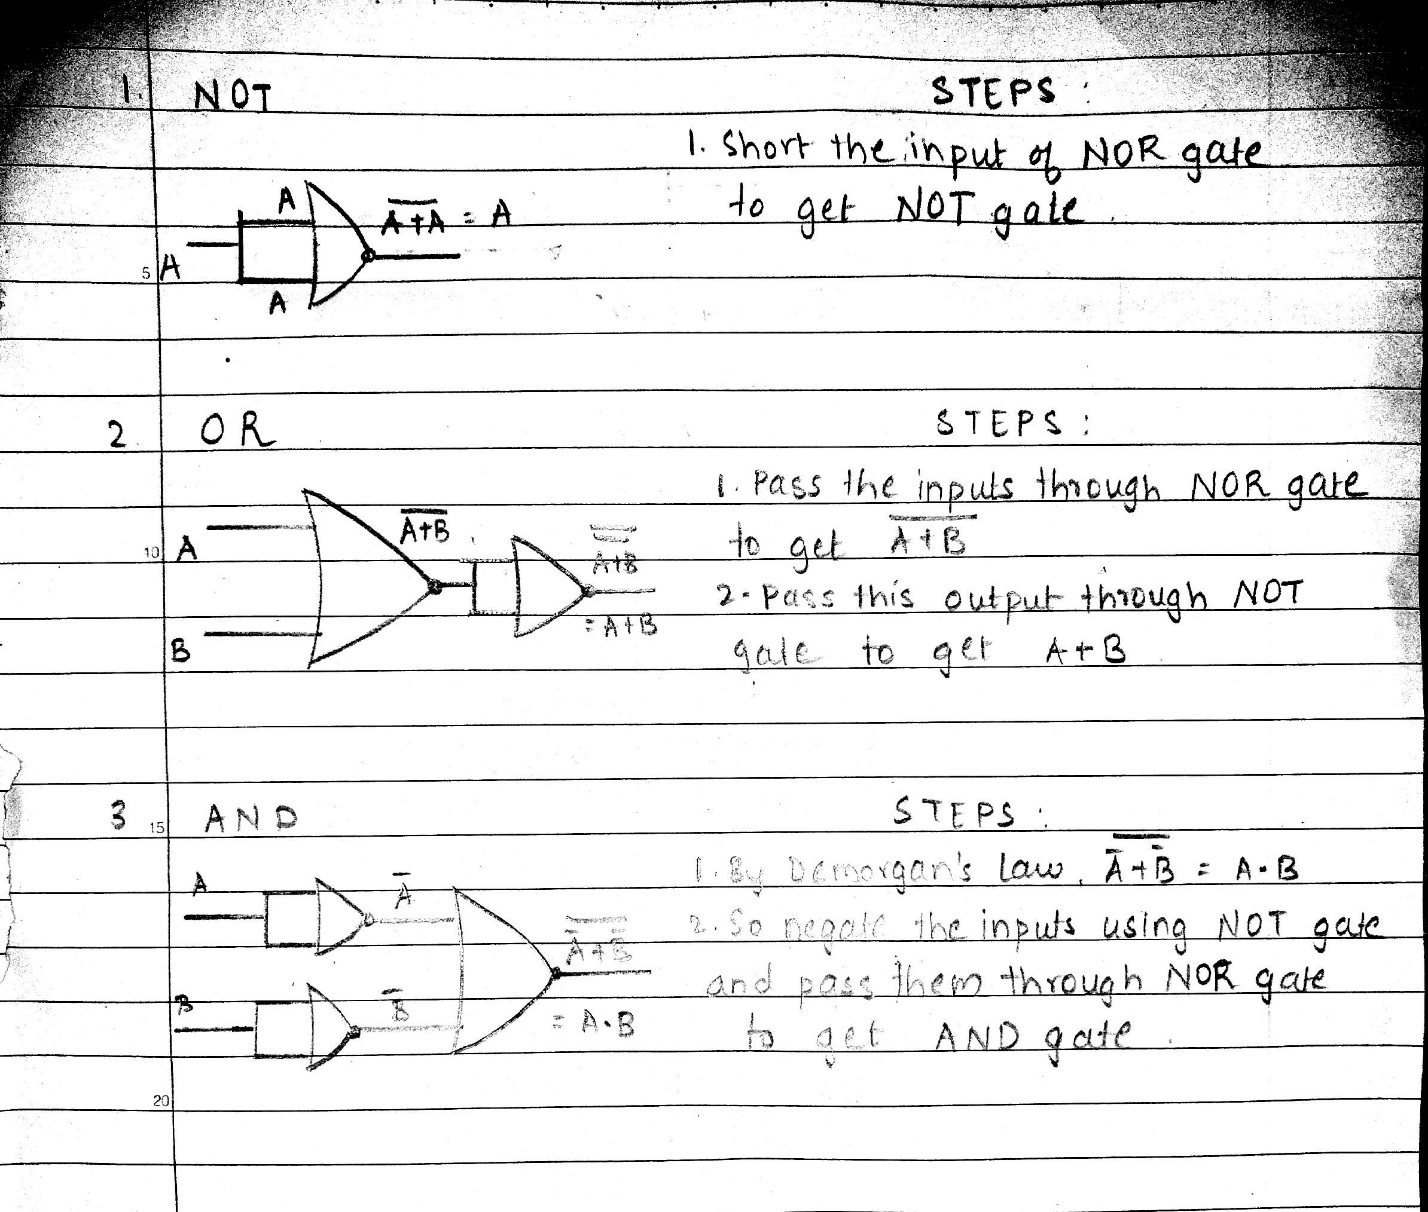 1. NOT
STEPS :
1. Short the input of NOR gate
to get NOT gate.
A
A̅+̅A̅ = A
5 A
A
2. OR
STEPS :
1. Pass the inputs through NOR gate
to get A̅+̅B̅
2. Pass this output through NOT
gate to get A+B
A̅+̅B̅
A̿+̿B̿
10 A
= A+B
B
3 15 AND
STEPS :
1. By Demorgan's Law, A̿+̅B̿ = A.B
2. So negate the inputs using NOT gate
and pass them through NOR gate
to get AND gate.
A
A̅
A̿+̿B̿
B
B̅
= A.B
20